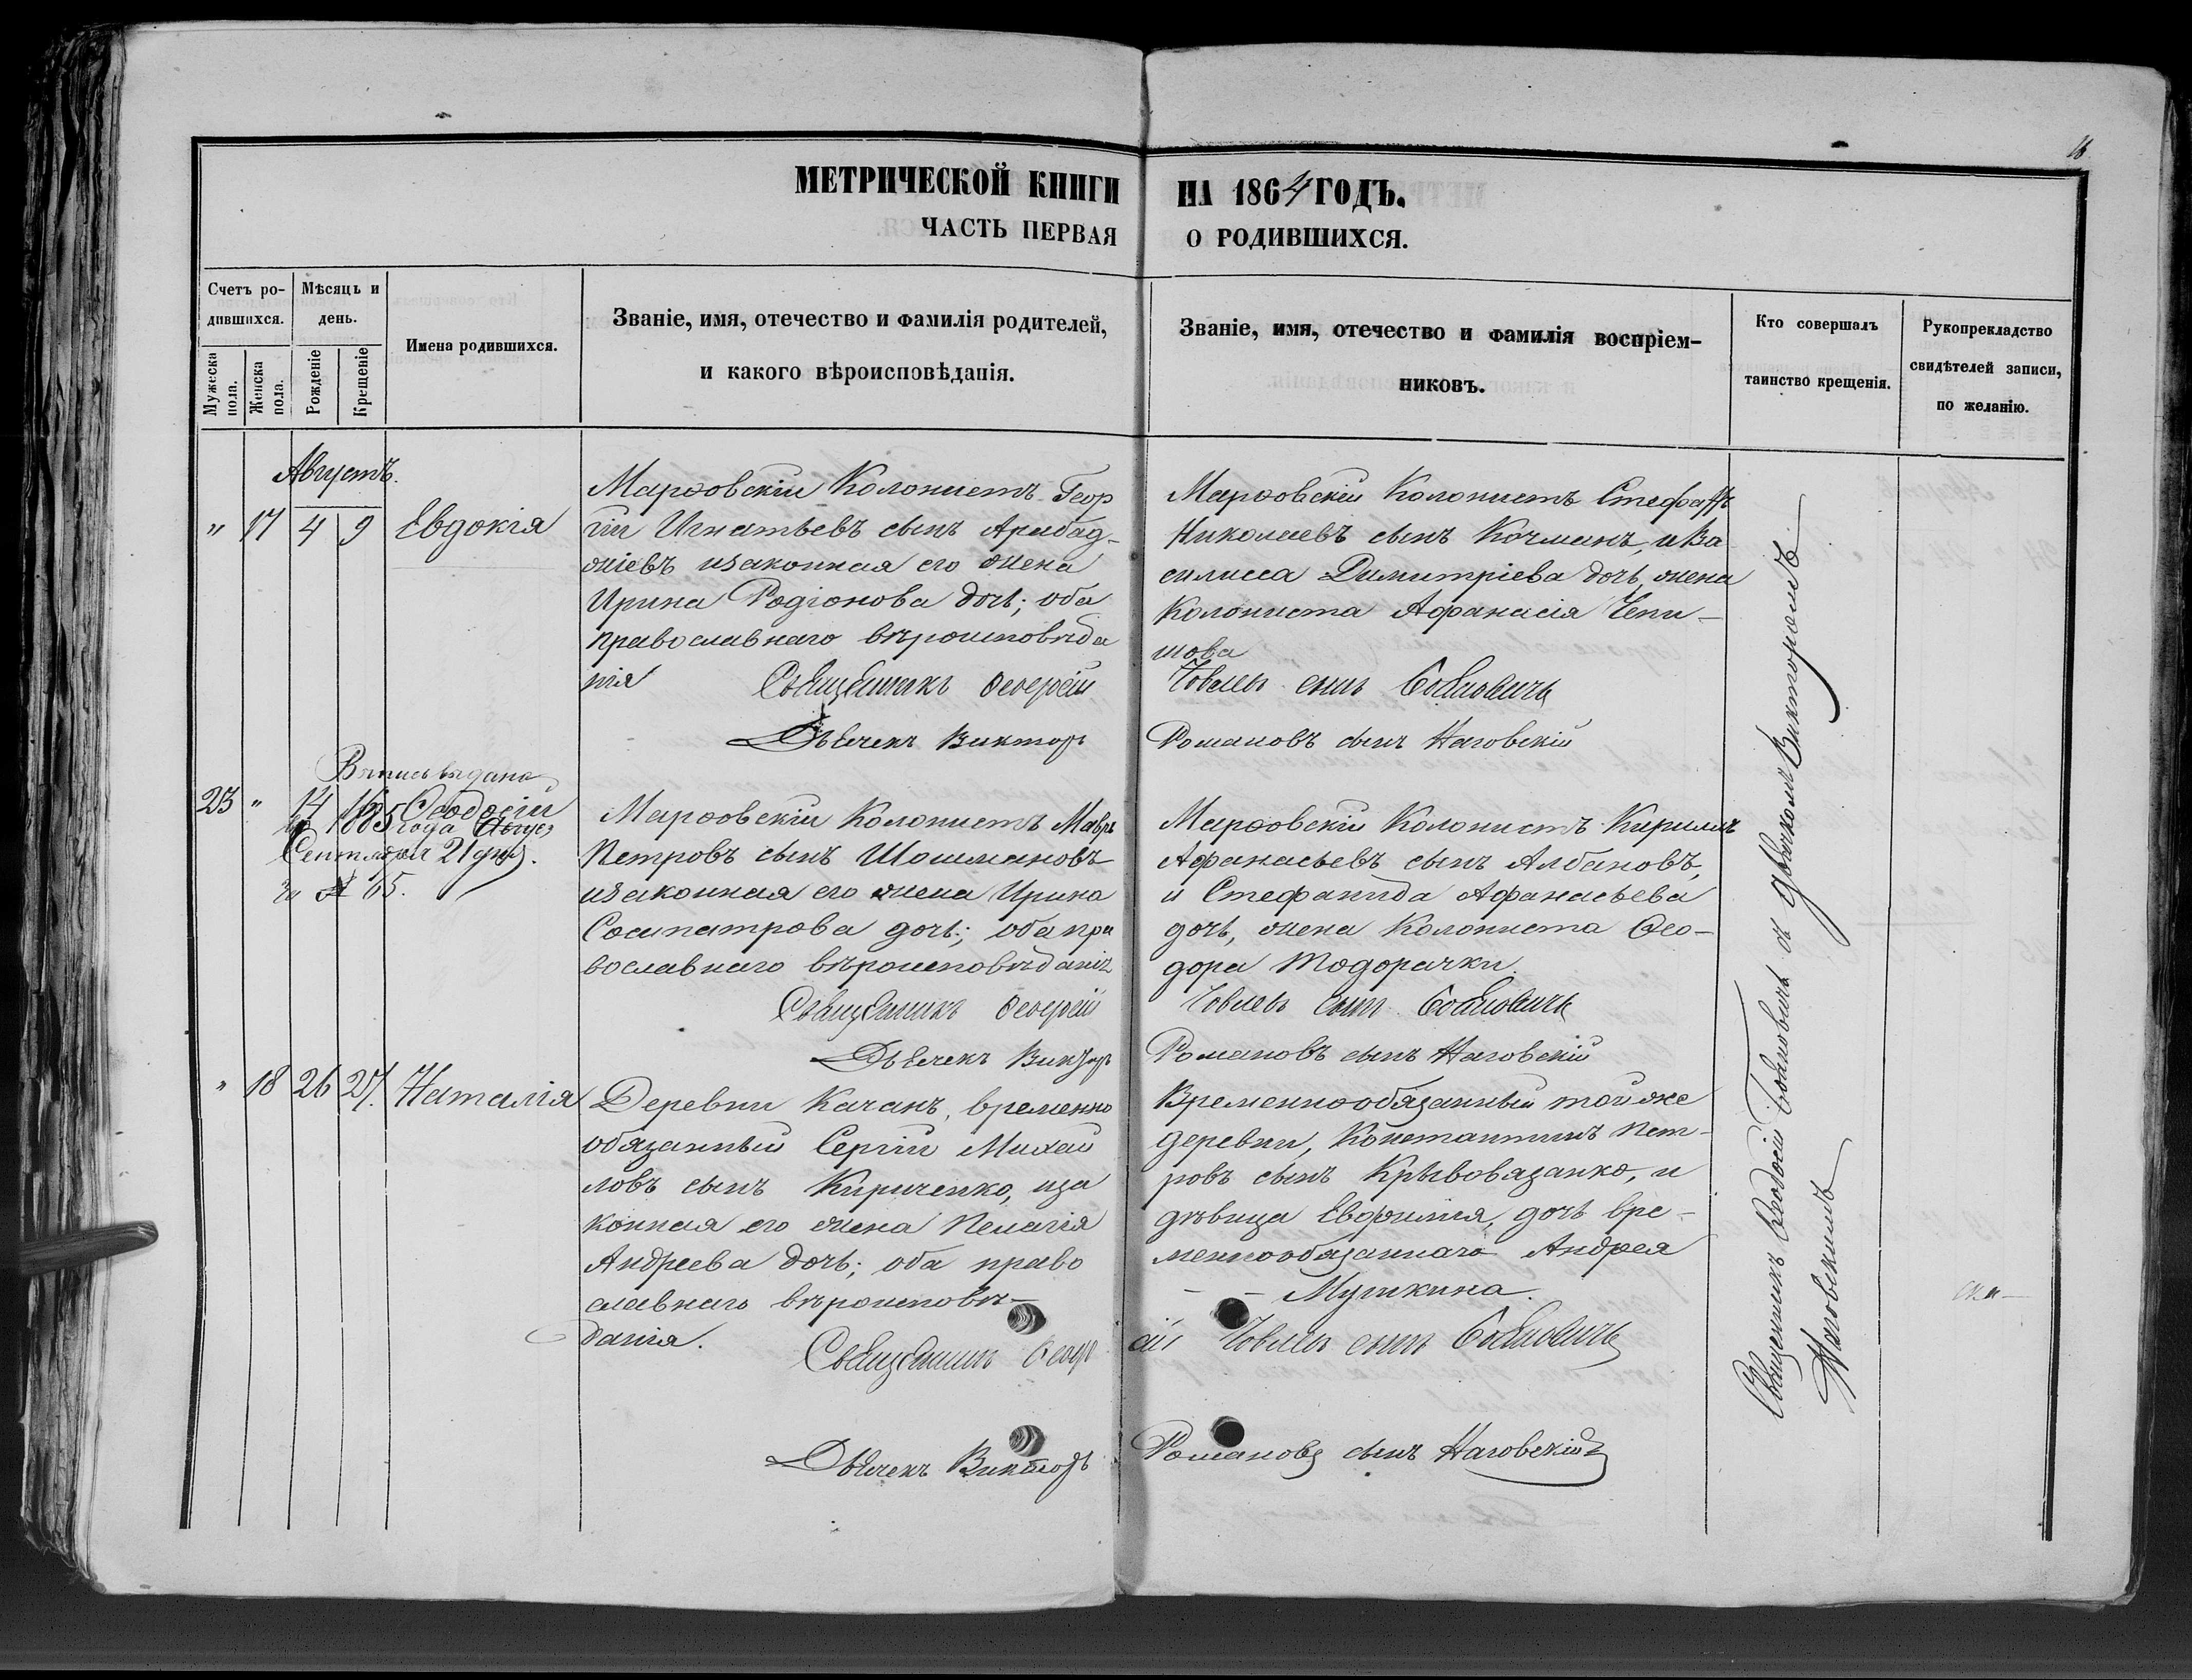 16
МЕТРИЧЕСКОЙ КНИГИ НА 1864 ГОДЪ.
ЧАСТЬ ПЕРВАЯ О РОДИВШИХСЯ.
Счетъ ро-
дившихся.
Мужеска
пола.
Женска
пола.
Мѣсяцъ и
день.
Рожденіе
Крещеніе
Имена родившихся.
Званіе, имя, отечество и фамилія родителей,
и какого вѣроисповѣданія.
Званіе, имя, отечество и фамилія воспріем-
никовъ.
Кто совершалъ
таинство крещенія.
Рукоприкладство
свидѣтелей записи,
по желанію.
Августъ.
" 17 4 9 Евдокія
Марѳовскій Колонистъ Геор
гій Игнатьевъ сынъ Арабад-
жіевъ изаконная его жена
Ирина Родіонова дочь; оба
православнаго вѣроисповѣда
нія
Священникъ Ѳеодосій
Дьячекъ Викторъ
Марѳовскій Колонистъ Стефанъ
Николаевъ сынъ Кочманъ, и Ва
силисса Димитріева дочь, жена
Колониста Афанасія Чепи-
шова
сынъ
Романовъ сынъ Наговскій
Выпись выдана
23 " 14 16 Ѳеодосій
1885 года
Сентября 21 дня.
за № 65.
Марѳовскій Колонистъ Мавръ
Петровъ сынъ Шошмановъ
изаконная его жена Ирина
Сосипатрова дочь; оба пра
вославнаго вѣроисповѣданія
Священникъ Ѳеодосій
Дьячекъ Викторъ
Марѳовскій Колонистъ Кириллъ
Афанасьевъ сынъ Албановъ,
и Стефанида Афанасьева
дочь, жена Колониста Ѳео-
дора Тодорачки.
сынъ
Романовъ сынъ Наговскій
" 18 26 27. Наталія
Деревни Качанъ, временно
обязанный Сергій Михай
ловъ сынъ Кириченко, иза
конная его жена Пелагія
Андреева дочь; оба право
славнаго вѣроисповѣ-
данія.
Священникъ Ѳеодосій
Дьячекъ Викторъ
Временнообязанный той же
деревни, Константинъ Пет-
ровъ сынъ Крывовязанко, и
дѣвица Евфимія, дочь вре-
меннообязаннаго Андрея
- - Мушкина.
сынъ
Романовъ сынъ Наговскій
Священникъ Ѳеодосій съ дьячкомъ Викторомъ
Наговскимъ